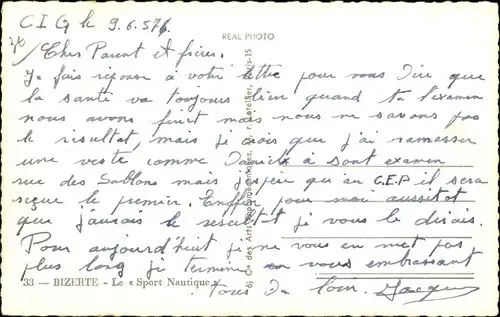 C I G le 9.6.57
REAL PHOTO
Cher Parent et frères.
Je fais réponse à votre lettre pour vous dire que
la santé va toujours bien quand à l'examen
nous avons finit mais nous ne savons pas
le résultat, mais je crois que j'ai ramasser
une veste comme Daniel à sont examen
rue des Sablons mais j'espère qu'au C.E.P il sera
reçue le premier. Enffin pour moi aussitot
que j'aurais le resultat je vous le dirais.
Pour aujourd'huit je ne vous en met pas
plus long je termine en vous embrassant
33 — BIZERTE - Le « Sport Nautique »
Tous de loin. Jacques